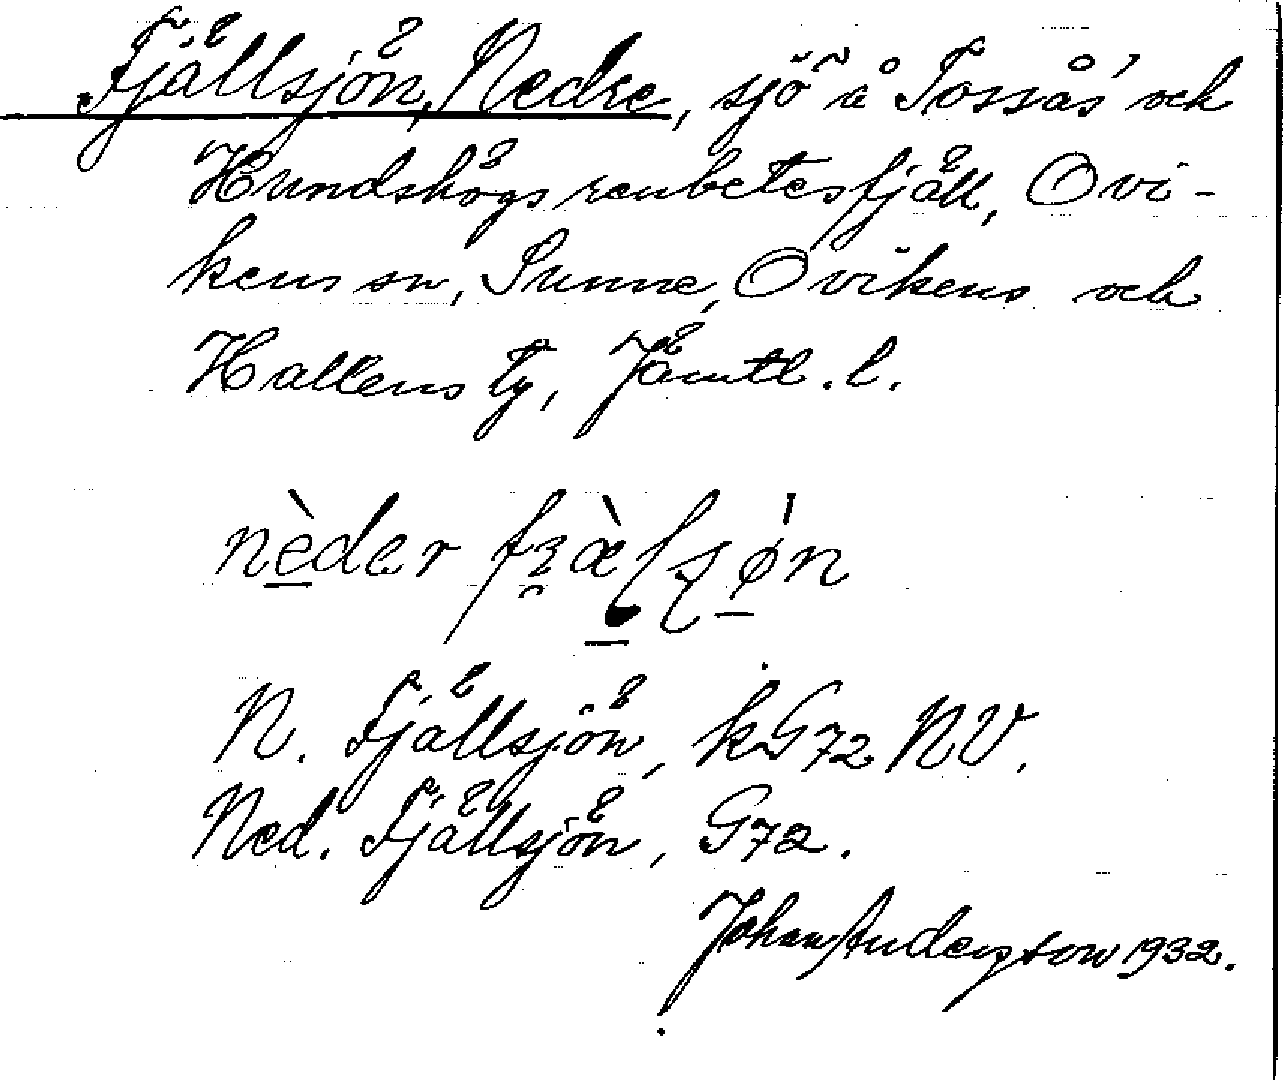 Fjällsjön, Nedre, sjö å Tossås' och
Hundshögs renbetesfjäll, Ovi-
kens sn, Sunne, Ovikens och
Hallens tg, Jämtl. l.
nèder fjæ̀lsjǿn
N. Fjällsjön, kG72 NV.
Ned. Fjällsjön, G72.
Johan Anderzson 1932.